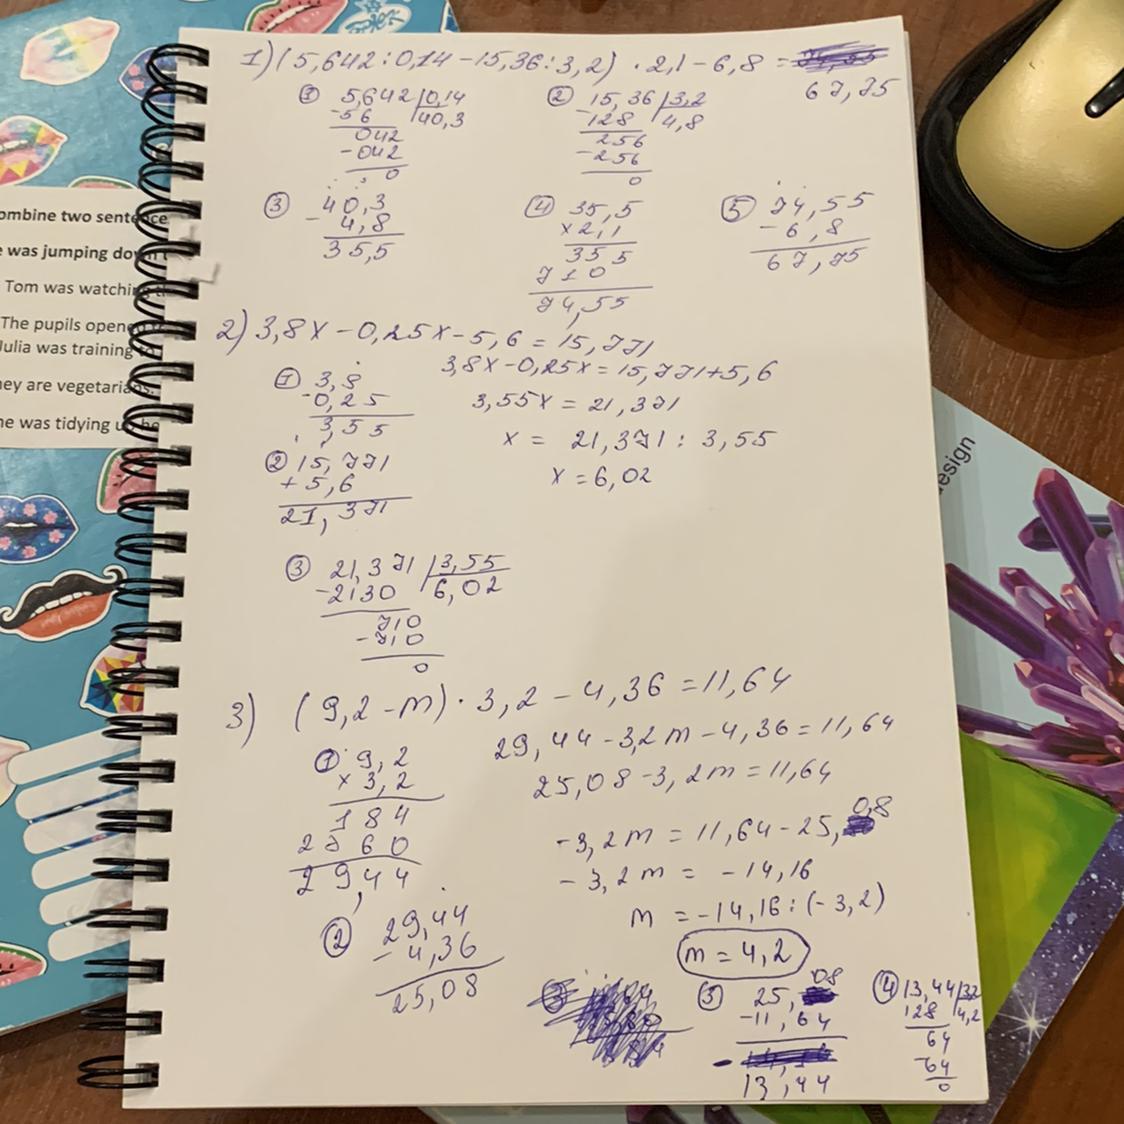 1) (5,642 : 0,14 - 15,36 : 3,2) · 2,1 - 6,8 =
67,75
① 5,642 | 0,14
-56 40,3
042
-042
0
② 15,36 | 3,2
-128 4,8
256
-256
0
③ 40,3
- 4,8
35,5
④ 35,5
×2,1
355
710
74,55
⑤ 74,55
-6,8
67,75
2) 3,8x - 0,25x - 5,6 = 15,771
3,8x - 0,25x = 15,771 + 5,6
3,55x = 21,371
x = 21,371 : 3,55
x = 6,02
① 3,8
-0,25
3,55
② 15,771
+ 5,6
21,371
③ 21,371 | 3,55
-2130 6,02
710
-710
0
3) (9,2 - m) · 3,2 - 4,36 = 11,64
29,44 - 3,2m - 4,36 = 11,64
25,08 - 3,2m = 11,64
-3,2m = 11,64 - 25,08
-3,2m = -14,16
m = -14,16 : (-3,2)
m = 4,2
① 9,2
× 3,2
184
2760
29,44
② 29,44
- 4,36
25,08
③ 25,08
-11,64
13,44
④ 13,44 | 32
128 4,2
64
-64
0
ombine two sentence
e was jumping do
Tom was watching
The pupils opene
Julia was training
hey are vegetarians.
he was tidying u he
esign